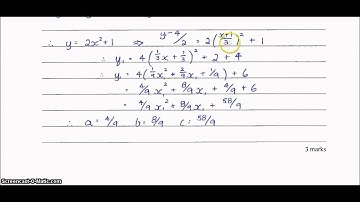 ∴ y = 2x² + 1 ⇒ y-4/2 = 2(x+1/3)² + 1
∴ y₁ = 4(1/3x + 1/3)² + 2 + 4
∴ y₁ = 4(1/9x₁² + 2/9x₁ + 1/9) + 6
= 4/9x₁² + 8/9x₁ + 4/9 + 6
= 4/9x₁² + 8/9x₁ + 58/9
∴ a = 4/9 b = 8/9 c = 58/9
3 marks
Screencast-O-Matic.com